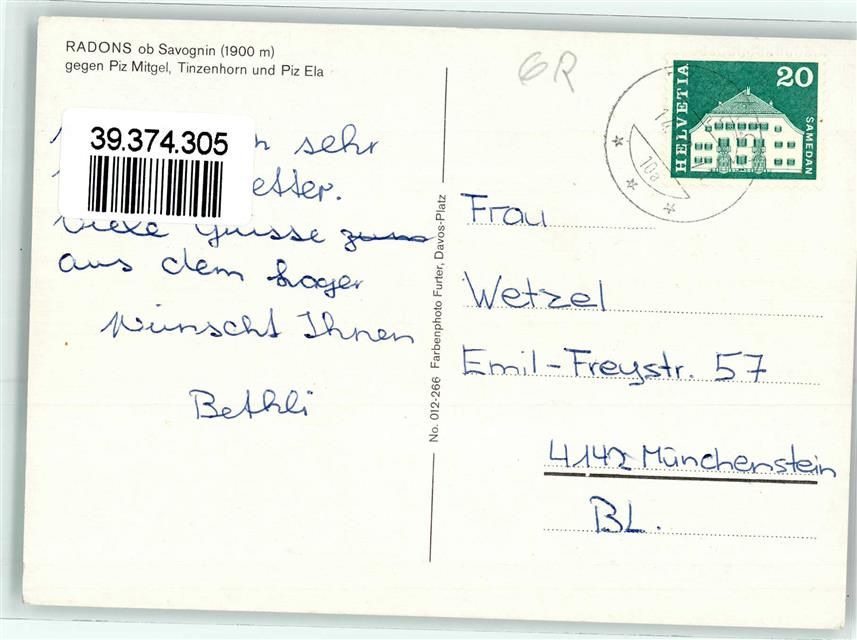 RADONS ob Savognin (1900 m)
gegen Piz Mitgel, Tinzenhorn und Piz Ela
39.374.305
sehr
etter.
Viele Grüsse zum
aus dem Lager
wünscht Ihnen
Bethli
No. 012-266 Farbenphoto Furter, Davos-Platz
GR
HELVETIA
20
SAMEDAN
Frau
Wetzel
Emil-Freystr. 57
4142 Münchenstein
BL.